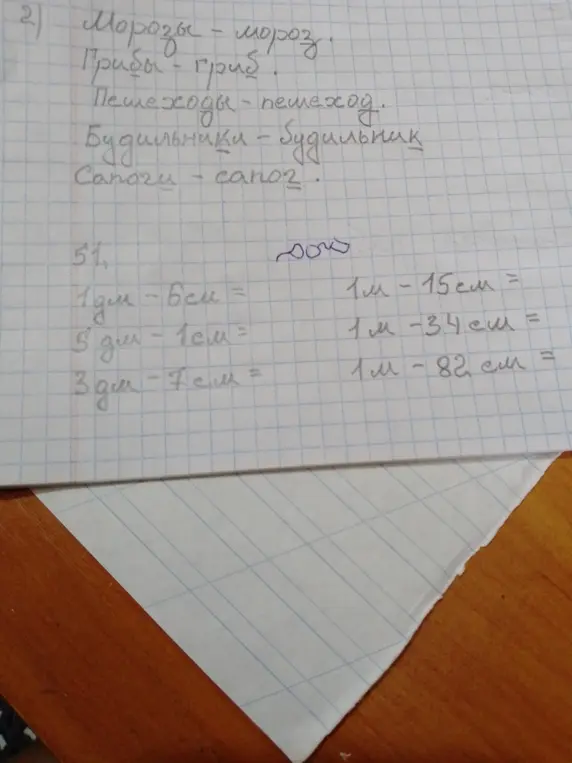 2) Морозы - мороз.
Грибы - гриб.
Пешеходы - пешеход.
Будильники - будильник
Сапоги - сапог.
51.
1дм - 6см =
5дм - 1см =
3дм - 7см =
1м - 15см =
1м - 34см =
1м - 82см =